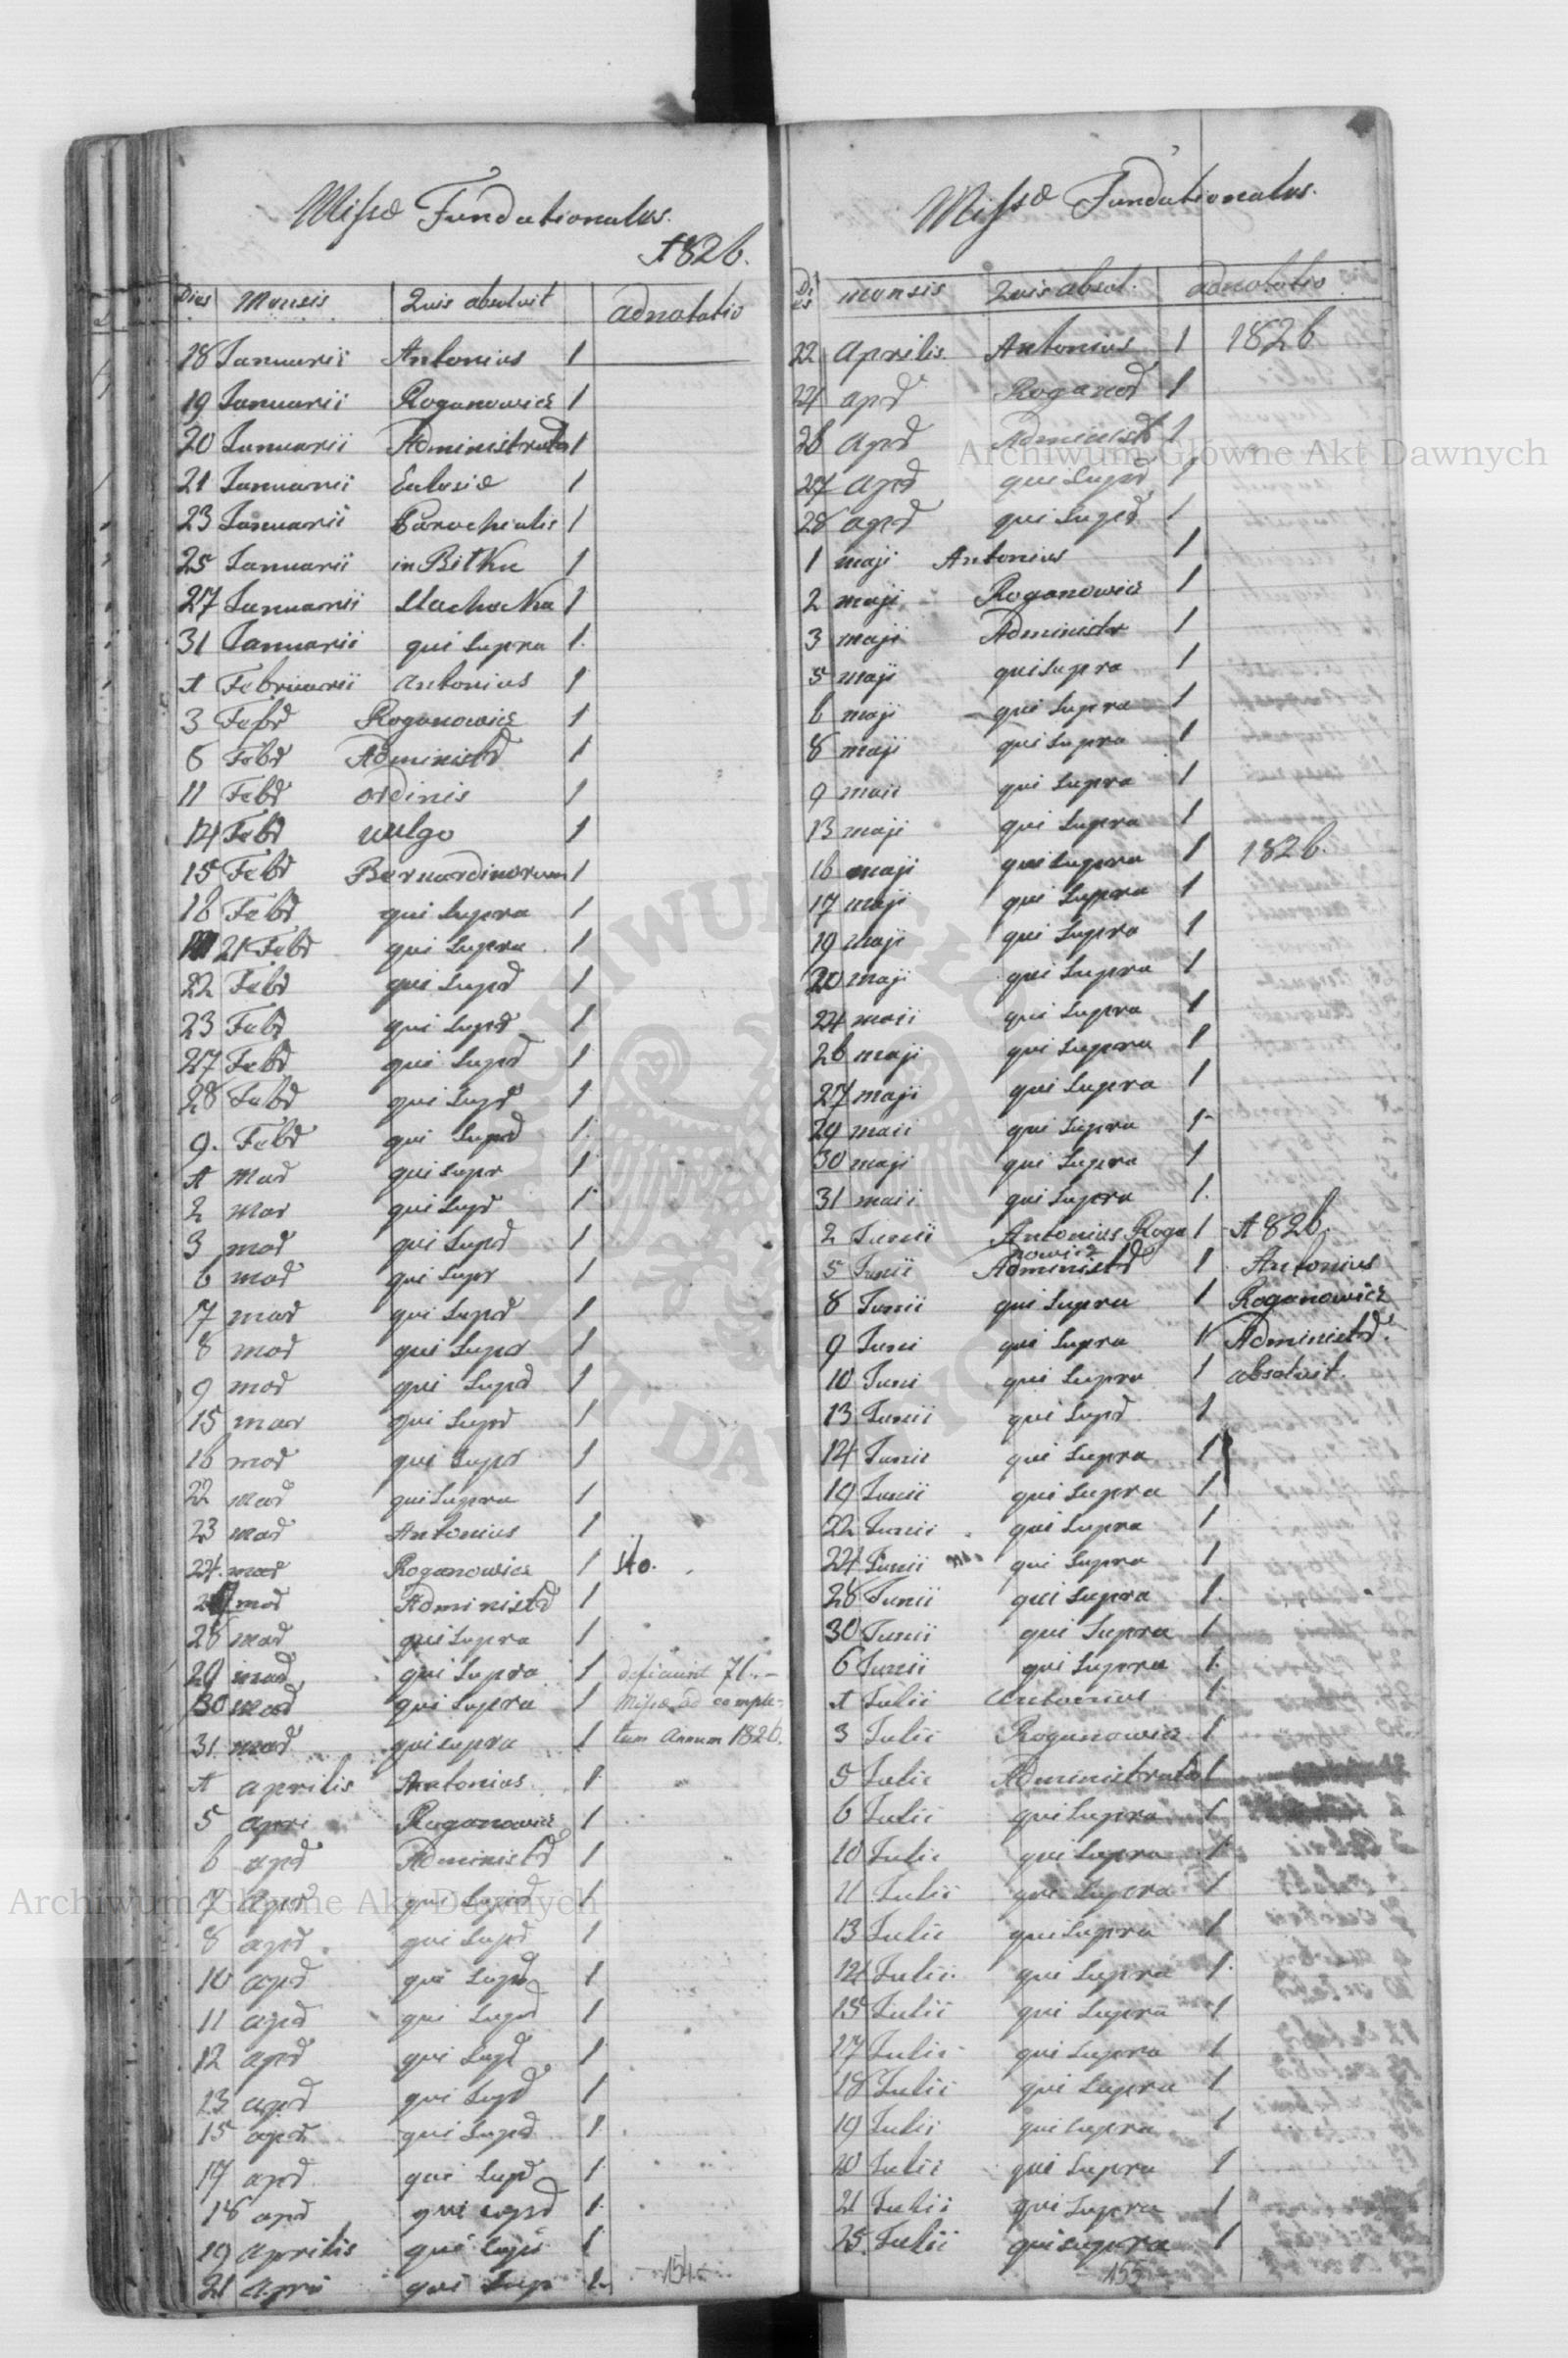 Missæ Fundationales.
1826.
Dies Mensis Quis absolvit adnotatio
18 Januarii Antonius 1
19 Januarii Roganowicz 1
20 Januarii Administrator 1
21 Januarii Eclesiæ 1
23 Januarii Parochialis 1
25 Januarii in Bitku 1
27 Januarii Slachocka 1
31 Januarii qui Supra 1.
1 Februarii Antonius 1
3 Febr Roganowicz 1
6 Febr Administr 1
11 Febr ordinis 1
14 Febr vulgo 1
15 Febr Bernardinorum 1
16 Febr qui Supra 1
21 Febr qui Supra 1
22 Febr qui Supr 1
23 Febr qui Supr 1
27 Febr qui Supr 1
28 Febr qui Supr 1
9. Febr qui Supr 1.
1 Mar qui Supr 1
2 Mar qui Supr 1
3 mar qui Supr 1
6 mar qui Supr 1
7 mar qui Supr 1
8 mar qui Supr 1
9 mar qui Supr 1
15 mar qui Supr 1
16 mar qui Supr 1
22 mar qui Supra 1
23 mar Antonius 1
24. mar Roganowicz 1 40.
mar Administr 1
28 mar qui Supra 1
29 mar qui Supra 1 deficiunt 71.-
30 mar qui Supra 1 Missæ ad comple-
31. mar qui Supra 1 tum Annum 1826.
1 aprilis Antonius 1
5 apri Roganowicz 1
6 apr Administr 1
7 apr qui Supr 1
8 apr qui Supr 1
10 apr qui Supr 1
11 apr qui Supr 1
12 apr qui Supr 1
13 apr qui Supr 1
15 apr qui Supr 1
17 apr qui Supr 1
18 apr qui supr 1
19 aprilis qui Supr 1
21 apri qui Sup 1. 154
Missæ Fundationales.
Di es mensis Quis absol. adnotatio
22 Aprilis Antonius 1 1826
24 apr Roganov 1
26 apr Administr 1
27 apr qui Supr 1
28 apr qui Supr 1
1 maji Antonius 1
2 maji Roganowicz 1
3 maji Administr 1
5 maji qui Supra 1
6 maji qui Supra 1
8 maji qui Supra 1
9 maii qui Supra 1
13 maji qui Supra 1
16 maji qui Supra 1 1826.
17 maji qui Supra 1
19 maji qui Supra 1
20 maji qui Supra 1
24 maii qui Supra 1
26 maji qui Supra 1
27 maji qui Supra 1
29 maii qui Supra 1
30 maji qui Supra 1
31 maii qui Supra 1.
2 Junii Antonius Roga 1 1826.
nowicz
5 Junii Administr 1 Antonius
8 Junii qui Supra 1 Roganowicz
9 Juni qui Supra 1 Administr
10 Juni qui Supra 1 absolvit.
13 Junii qui Supr 1
14 Junii qui Supra 1
19 Junii qui Supra 1
22 Junii qui Supra 1
24 Junii qui Supra 1
28 Junii qui Supra 1.
30 Junii qui Supra 1
6 Junii qui Supra 1.
1 Julii Antonius 1
3 Julii Roganowicz 1
5 Julii Administrator 1
6 Julii qui Supra 1
10 Julii qui Supra 1
11 Julii qui Supra 1
13 Julii qui Supra 1
14 Julii qui Supra 1.
15 Julii qui Supra 1
17 Julii qui Supra 1
18 Julii qui Supra 1
19 Julii qui Supra 1
20 Julii qui Supra 1
21 Julii qui Supra 1
25 Julii qui supra 1
155
Archiwum Główne Akt Dawnych
Archiwum Główne Akt Dawnych
ARCHIWUM GŁÓWNE AKT DAWNYCH